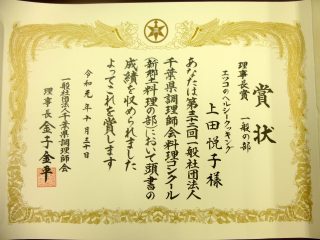 賞状
理事長賞 一般の部
エツコのヘルシークッキング
上田悦子様
あなたは第三十三回一般社団法人
千葉県調理師会料理コンクール
新郷土料理の部において頭書の
成績を収められました
よってこれを賞します
令和元年十月三十日
一般社団法人千葉県調理師会
理事長 金子金平